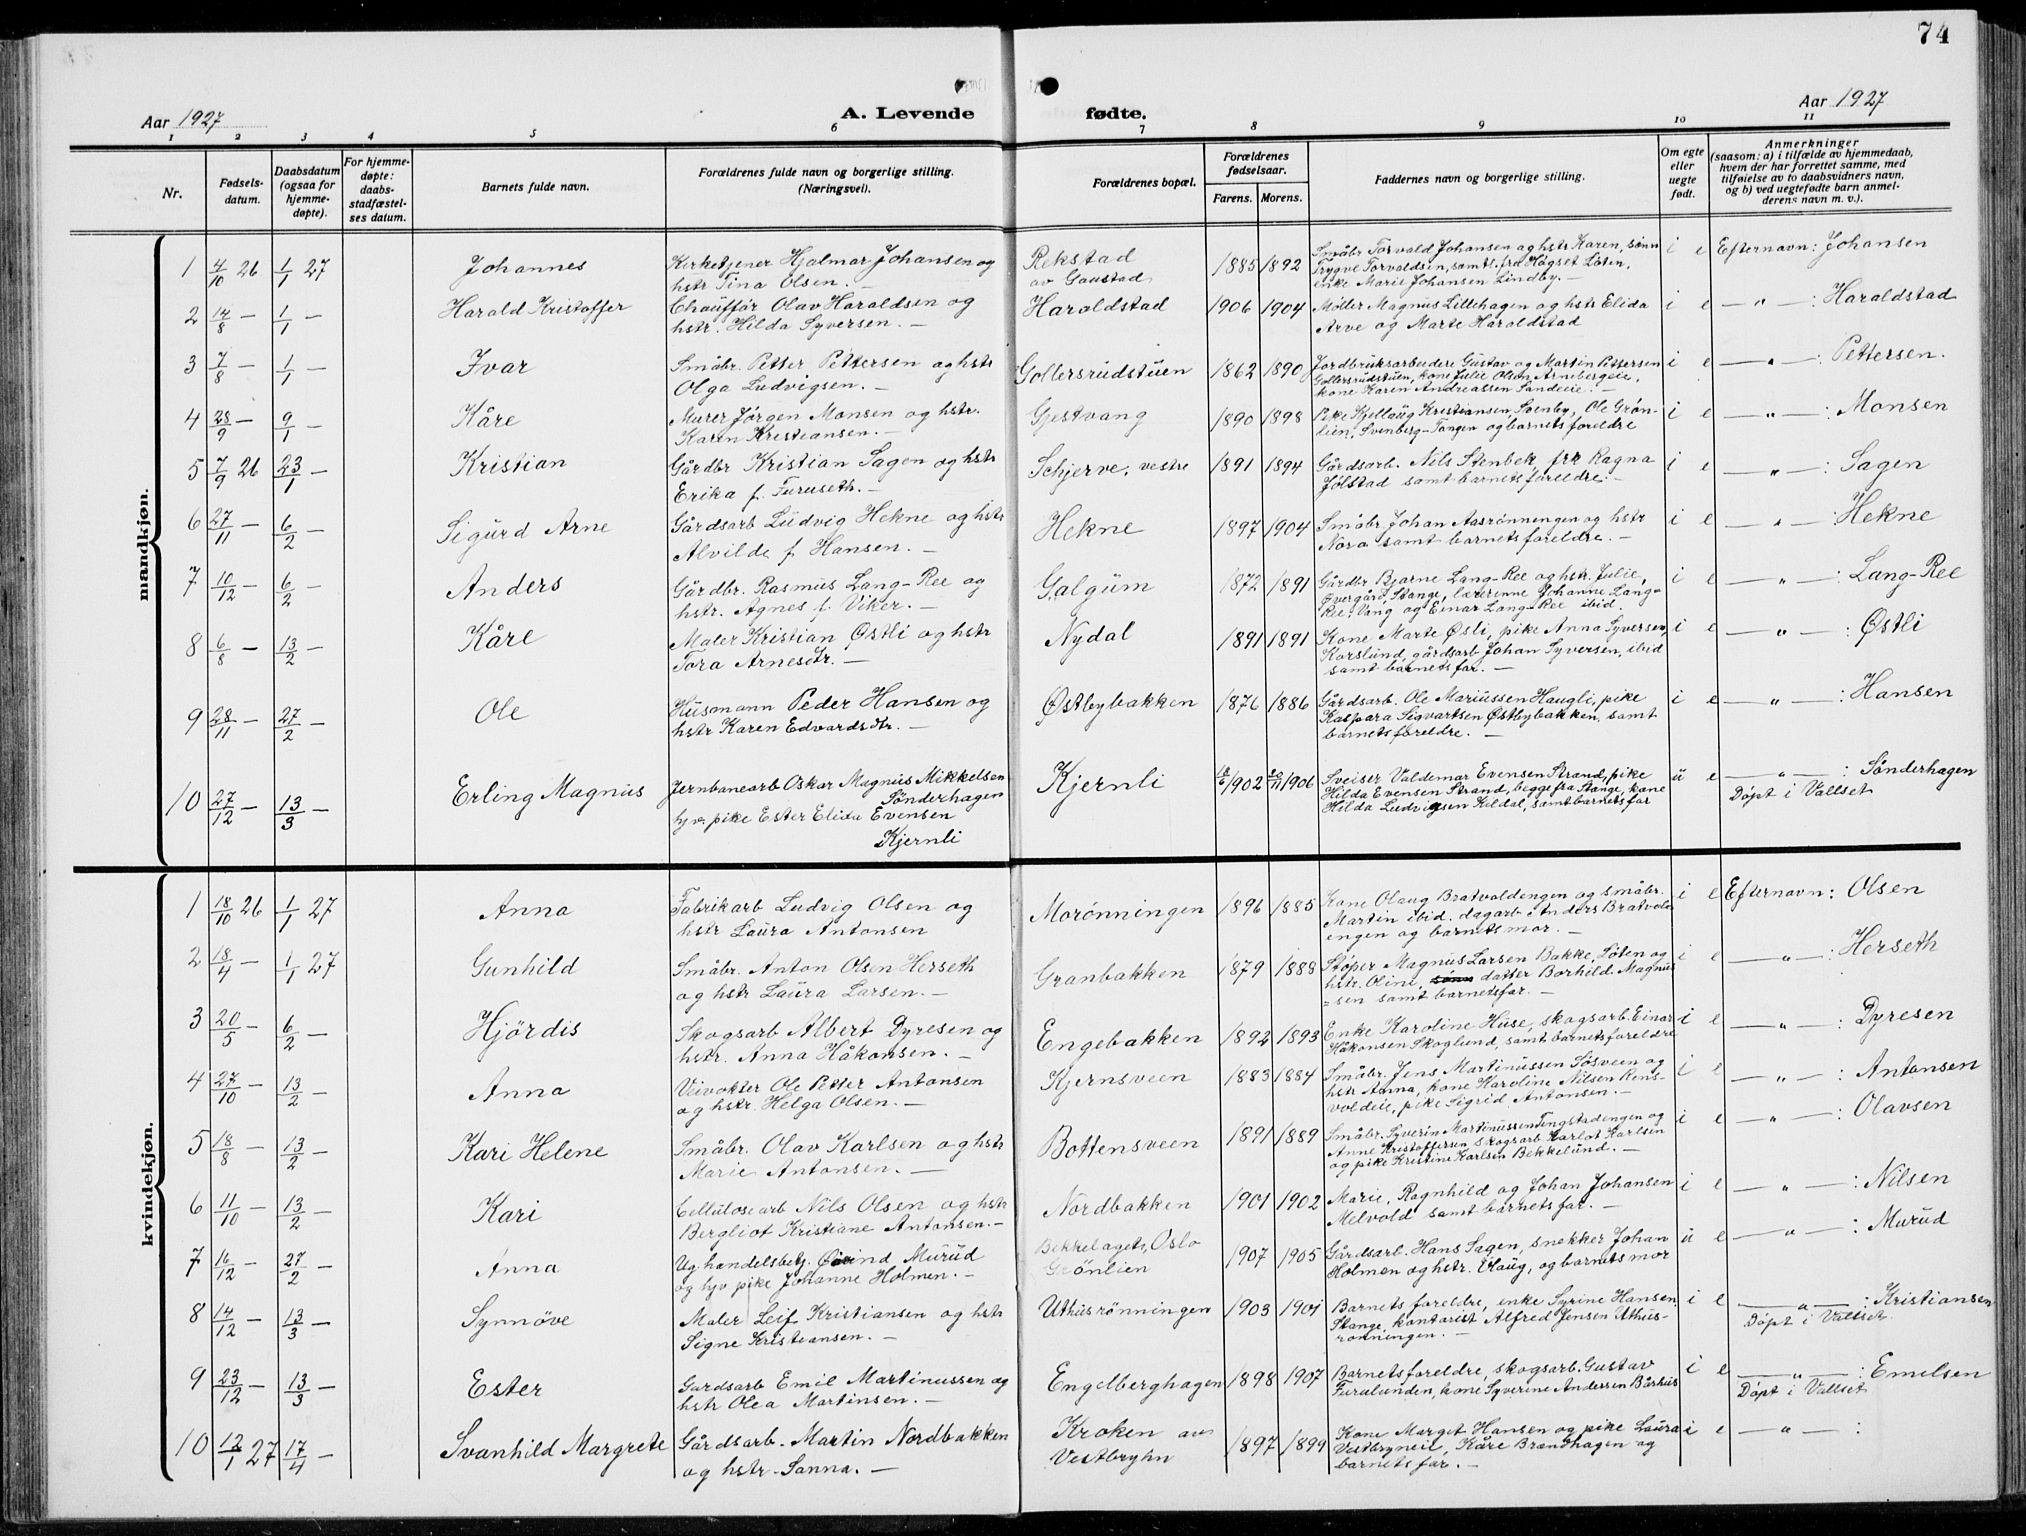 74
Aar 1927
A. Levende fødte.
Aar 1927
1 2 3 4 5 6 7 8 9 10 11
Nr.
Fødsels-
datum.
Daabsdatum
(ogsaa for
hjemme-
døpte).
For hjemme-
døpte:
daabs-
stadfæstel-
ses datum.
Barnets fulde navn.
Forældrenes fulde navn og borgerlige stilling.
(Næringsvei).
Forældrenes bopæl.
Forældrenes
fødselsaar.
Farens. Morens.
Faddernes navn og borgerlige stilling.
Om egte
eller
uegte
født.
Anmerkninger
(saasom: a) i tilfælde av hjemmedaab,
hvem der har forrettet samme, med
tilføielse av to daabsvidners navn,
og b) ved uegtefødte barn anmel-
derens navn m. v.).
mandkjøn.
1 4/10 26 1/1 27 Johannes
Kirketjener Hjalmar Johansen og
hstr Tina Olsen. —
Rekstad
av Gaustad
1885 1892
Småbr Torvald Johansen og hstr Karen, sønn
Trygve Torvaldsen, samtl. fra Høgset Løten,
enke Marie Johansen Lindby. —
i e Efternavn: Johansen
2 14/8 — 1/1 — Harald Kristoffer
Chauffør Olav Haraldsen og
hstr. Hilda Syversen. —
Haraldstad
1906 1904
Møller Magnus Lillehagen og hstr Elida
Arve og Marte Haraldstad
i e — " — : Haraldstad
3 7/8 — 1/1 — Ivar
Småbr. Petter Pettersen og hstr
Olga Ludvigsen. —
Gollersrudstuen
1862 1890
Jordbruksarbeidere Gustav og Martin Pettersen
Gollersrudstuen, kone Julie Olsen Arnebergeie,
kone Karen Andreassen Sandeie. —
i e — " — : Pettersen.
4 28/9 — 9/1 — Kåre
Murer Jörgen Monsen og hstr.
Karen Kristiansen. —
Gjestvang
1890 1898
Pike Kjellaug Kristiansen, Svenby, Ole Grøn-
lien, Svenberg-Tangen og barnets foreldre
i e — " — : Monsen
5 7/9 26 23/1 — Kristian
Gårdbr Kristian Sagen og hstr
Erika f. Furuseth. —
Schjerve, vestre
1891 1894
Gårdsarb. Nils Stenbek, frk Ragna
Jølstad samt barnets foreldre. —
i e — " — : Sagen
6 27/11 — 6/2 — Sigurd Arne
Gårdsarb Ludvig Hekne og hstr
Alvilde f. Hansen. —
Hekne
1897 1904
Småbr. Johan Aasrønningen og hstr
Nora samt barnets foreldre. —
i e — " — : Hekne
7 10/12 — 6/2 — Anders
Gårdbr. Rasmus Lang-Ree og
hstr. Agnes f. Viker. —
Galgum
1872 1891
Gårdbr. Bjarne Lang-Ree og hstr. Julie,
Øvergård, Stange, lærerinne Johanne Lang-
Ree, Vang og Einar Lang-Ree ibid.
i e — " — : Lang-Ree
8 6/8 — 13/2 — Kåre
Maler Kristian Østli og hstr
Tora Arnesdtr. —
Nydal
1891 1891
Kone Marte Øsli, pike Anna Syversen,
Korslund, gårdsarb Johan Syversen, ibid
samt barnets far. —
i e — " — : Østli
9 28/11 — 27/2 — Ole
Husmann Peder Hansen og
hstr Karen Edvardsdtr. —
Østbybakken
1876 1886
Gårdsarb. Ole Mariussen Haugli, pike
Kaspara Sigvartsen Østbybakken, samt
barnets foreldre. —
i e — " — : Hansen
10 27/12 — 13/3 — Erling Magnus
Jernbanearb Oskar Magnus Mikkelsen
Sønderhagen
hjv. pike Ester Elida Evensen
Kjernli
Kjernli
18/6 1902 20/11 1906
Sveiser Valdemar Evensen Strand, pike
Hilda Evensen Strand, begge fra Stange, kone
Hilda Ludvigsen Kildal, samt barnets far
u e — " — : Sønderhagen
Döpt i Vallset
kvindekjøn.
1 18/10 26 1/1 27 Anna
Fabrikarb Ludvig Olsen og
hstr Laura Antonsen
Morönningen
1896 1885
Kone Olaug Bratvoldengen og småbr.
Martin ibid. dagarb Anders Bratvold
engen og barnets mor. —
i e Efternavn: Olsen
2 18/4 — 1/1 27 Gunhild
Småbr. Anton Olsen Herseth
og hstr Laura Larsen. —
Granbakken
1879 1888
Støper Magnus Larsen Bakke, Løten og
hstr. Oline, sønn datter Borhild Magnus
=sen samt barnets far. —
i e — " — : Herseth
3 20/5 — 6/2 — Hjördis
Skogsarb Albert Dyresen og
hstr. Anna Håkonsen. —
Engebakken
1892 1893
Enke Karoline Huse, skogsarb. Einar
Håkonsen Skoglund, samt barnets foreldre
i e — " — : Dyresen
4 27/10 — 13/2 — Anna
Veivokter Ole Petter Antonsen
og hstr. Helga Olsen. —
Kjernsveen
1883 1884
Småbr. Jens Martinussen Søsveen og
hstr Anna, kone Karoline Nilsen Rens-
voldeie, pike Sigrid Antonsen. —
i e — " — : Antonsen
5 18/8 — 13/2 — Kari Helene
Småbr. Olav Karlsen og hstr
Marie Antonsen. —
Bottensveen
1891 1889
Småbr. Syverin Martinussen Tingstadengen og
Anne Kristoffersen, skogsarb Karlot Karlsen
og pike Kristine Karlsen Bekkelund. —
i e — " — : Olavsen
6 11/10 — 13/2 — Kari
Cellulosearb Nils Olsen og hstr
Bergliot Kristiane Antonsen. —
Nordbakken
1901 1902
Marie, Ragnhild og Johan Johansen
Melvold samt barnets far. —
i e — " — : Nilsen
7 16/12 — 27/2 — Anna
Ug handelsbetj. Øivind Murud
og hjv pike Johanne Holmen. —
Bekkelaget, Oslo
Grönlien
1907 1905
Gårdsarb. Hans Sagen, snekker Johan
Holmen og hstr. Olaug, og barnets mor
u e — " — : Murud
8 14/12 — 13/3 — Synnöve
Maler Leif Kristiansen og hstr
Signe Kristiansen. —
Uthusrönningen
1903 1901
Barnets foreldre, enke Syrine Hansen,
Stange, kontorist Alfred Jensen Uthus-
rönningen. —
i e — " — : Kristiansen
Döpt i Vallset.
9 23/12 — 13/3 — Ester
Gardsarb Emil Martinussen og
hstr Olea Martinsen. —
Engelberghagen
1898 1907
Barnets foreldre, skogsarb. Gustav
Furulunden, kone Syverine Andersen Bårhus
i e — " — : Emilsen
Döpt i Vallset
10 12/1 27 17/4 — Svanhild Margrete
Gårdsarb. Martin Nordbakken
og hstr. Sanna. —
Kroken av
Vestbryhn
1897 1899
Kone Marget Hansen og pike Laura
Vestbryneie, Kåre Brandhagen og
barnets far. —
i e — " — :